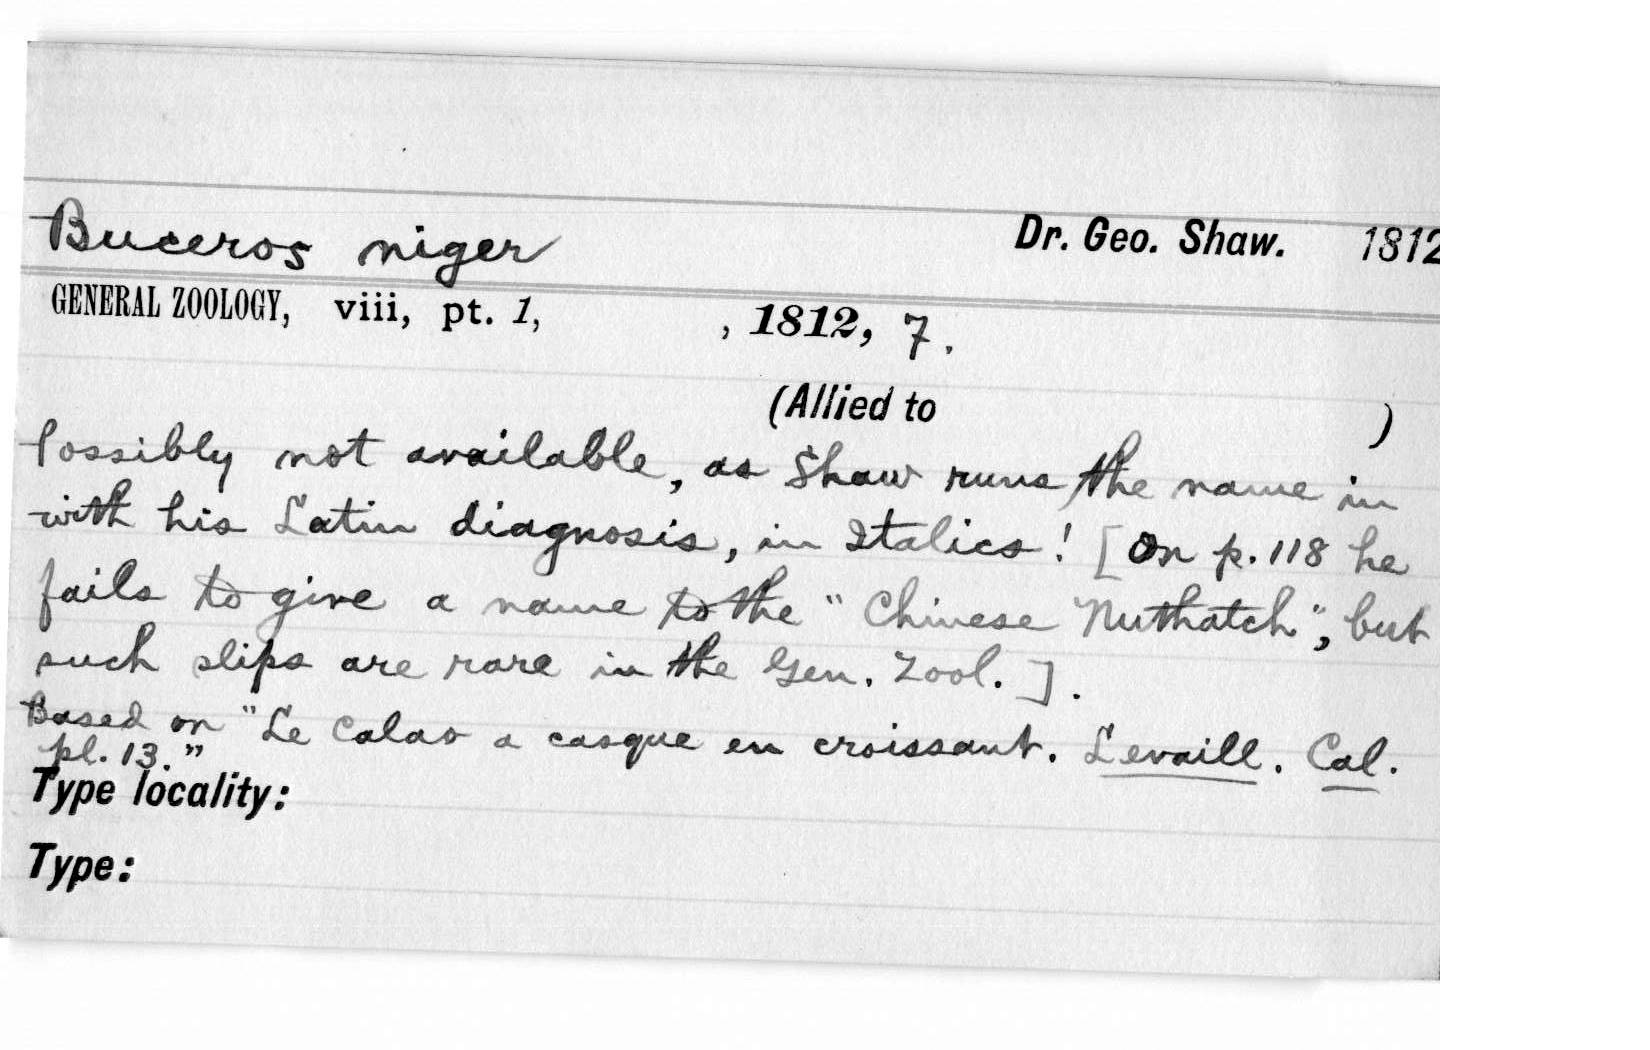 Buceros niger Dr. Geo. Shaw. 1812
GENERAL ZOOLOGY, viii, pt. 1, , 1812, 7.
(Allied to )
Possibly not available, as Shaw runs the name in
with his Latin diagnosis, in Italics! [On p. 118 he
fails to give a name to the "Chinese Nuthatch", but
such slips are rare in the Gen. Zool.].
Based on "Le Calao a casque en croissant. Levaill. Cal.
pl. 13."
Type locality:
Type: